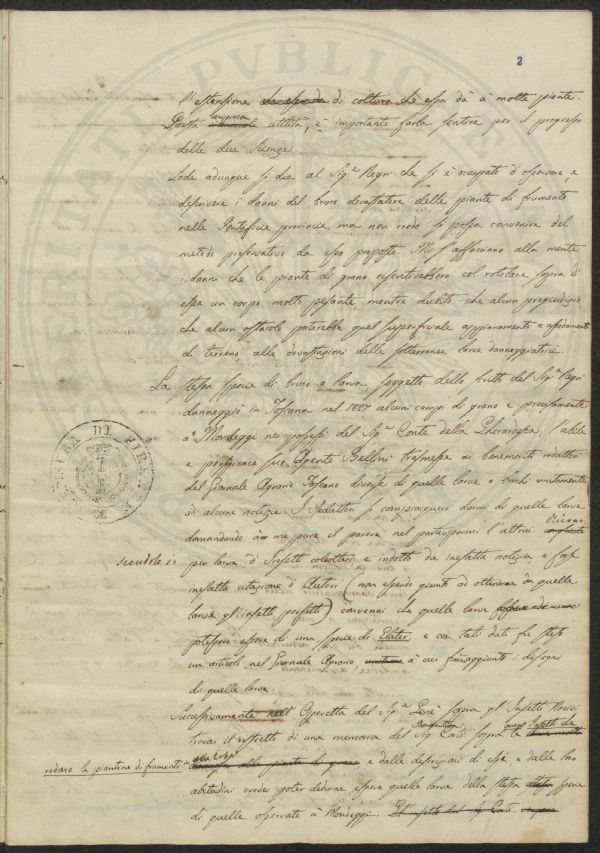 2
l'estensione di coltura che essa dà à molte piante.
Questa reciproca utilità, è importante farla sentire per il progresso
delle due Scienze
Lode adunque si dia al Sig.r Negri che si è occupato d'osservare, e
descrivere i danni del bruco devastatore delle piante di frumento
nelle Pontificie provincie, ma non credo si possa convenire del
metodo preservativo da esso proposto. Mi s'affacciano alla mente
i danni che le piante di grano risentirebbero col rotolare sopra di
esse un corpo molto pesante, mentre dubito che alcun pregiudizio
che alcun ostacolo potrebbe quel superficiale appianamento e assodamento
di terreno alle devastazioni delle sotterranee larve danneggiatrici.
La stessa specie di bruco o larva soggetto dello scritto del Sig.r Negri
danneggiò in Toscana nel 1827 alcuni campi di grano e precisamente
a Mondeggi nei possessi del Sig.r Conte della Gherardesca; l'abile
e perspicace suo Agente Bellini trasmesse ai benemeriti redattori
del Giornale Agrario Toscano diverse di quelle larve o bruchi unitamente
ad alcune notizie. I Redattori si compiacquero darmi di quelle larve
domandando a me pure il parere nel parteciparmi l'altrui.
Dicendole io
per larve d'Insetti coleotteri, e indotto da inesatta notizia e forse
inesatta citazione d'Autori (non essendo giunti ad ottenere da quelle
larve gl'insetti perfetti) convenni che quelle larve
potessero essere di una specie di Elater, e con tali dati fu steso
un articolo nel Giornale Agrario, à cui furono aggiunti i disegni
di quelle larve
Successivamente nell'Operetta del Sig.r Gené sopra gl'Insetti nocivi
trovai il ristretto di una memoria del Sig. Conti sopra
rodano le piantine di frumento
e dalle descrizioni di esse, e dalle loro
abitudini credei poter dedurre essere quelle larve della stessa specie
di quelle osservate à Mondeggi.